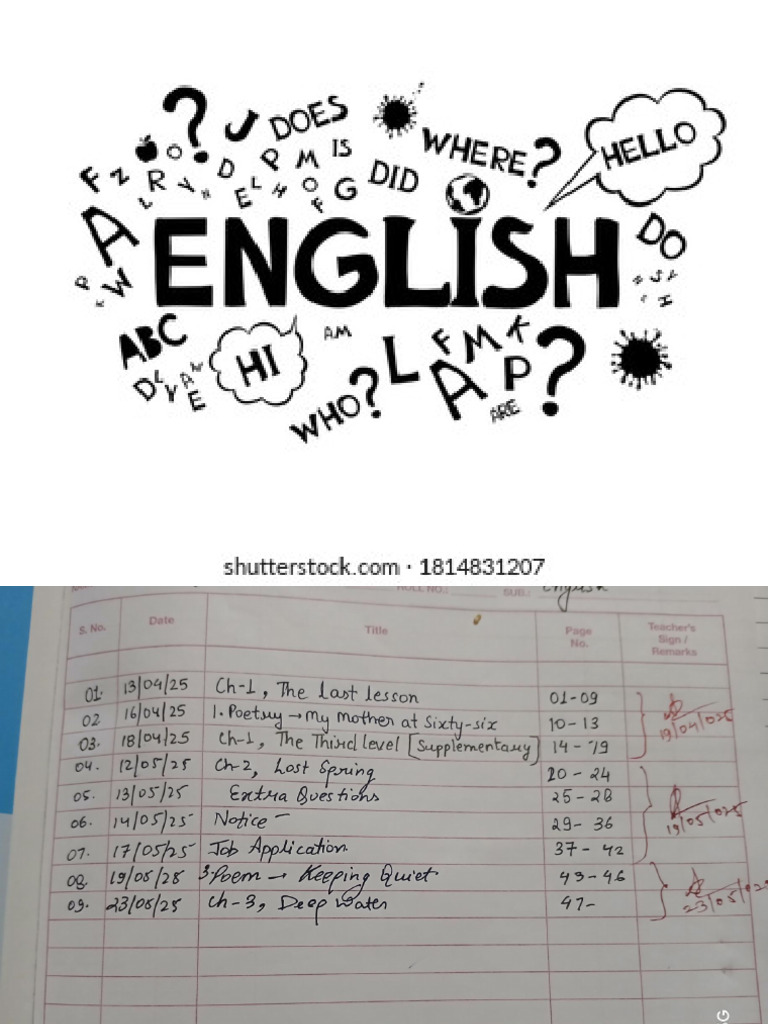 ? J DOES
WHERE?
HELLO
O P M IS
F Z R Y N D E L H O F G DID
L
A ENGLISH DO
P W
ABC HI AM L F M K
D L Y A N E WHO? A P ?
ARE
shutterstock.com · 1814831207
ROLL NO.: SUB.: English
S. No. Date Title Page No. Teacher's Sign / Remarks
01. 13/04/25 Ch-1, The last lesson 01-09
02 16/04/25 1. Poetry → My mother at Sixty-six 10-13 19/04/025
03. 18/04/25 Ch-1, The Third level [Supplementary] 14-19
04. 12/05/25 Ch-2, Lost Spring 20-24
05. 13/05/25 Extra Questions 25-28
06. 14/05/25 Notice – 29-36 19/05/025
07. 17/05/25 Job Application 37-42
08. 19/05/25 3. Poem → Keeping Quiet 43-46
09. 23/05/25 Ch-3, Deep Water 47- 23/05/025
G